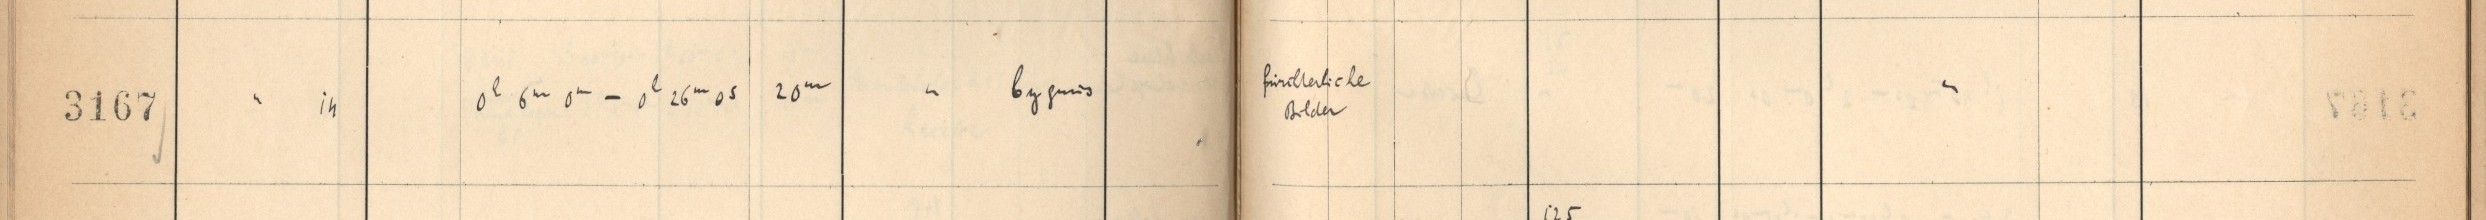 3167 " 14 0h 6m 0m – 0h 26m 0s 20m " Cygnus fürchterliche
Bilder "
125